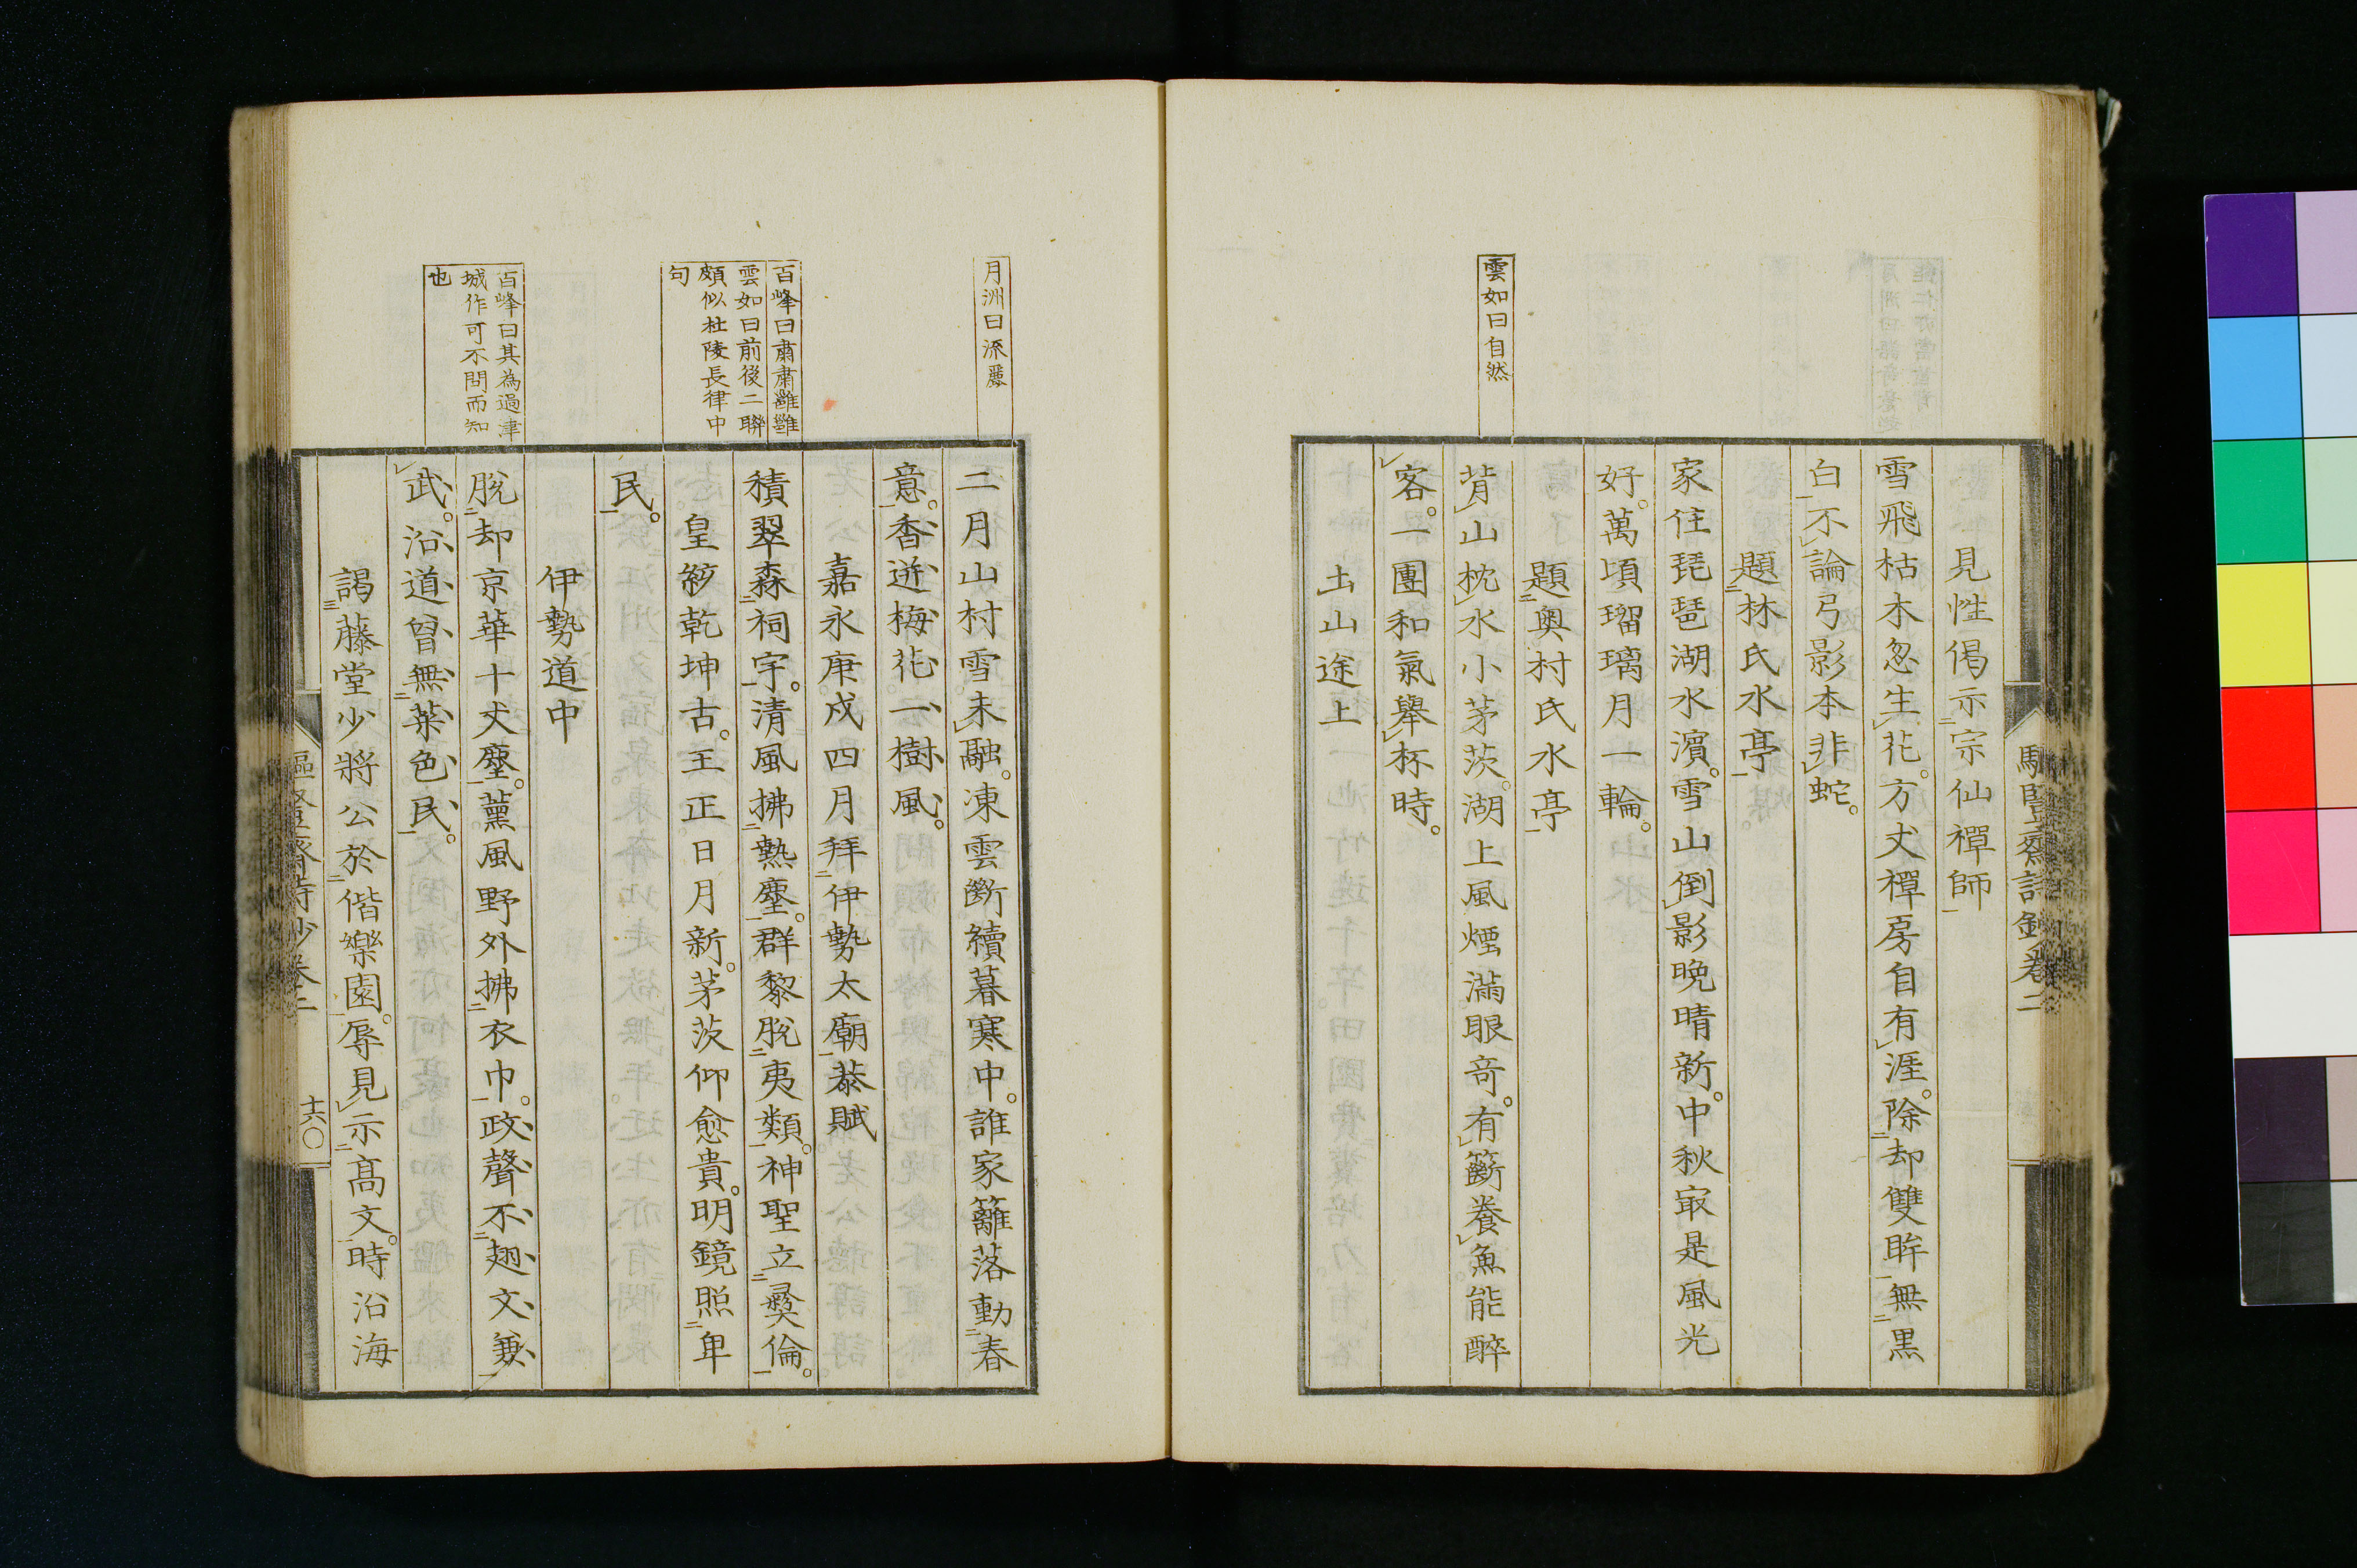 見性偈示宗仙禪師
雪飛枯木忽生花。方丈禪房自有涯。除却雙眸無黑
白不論弓影本非蛇。
題林氏水亭
家住琵琶湖水濱。雪山倒影晩晴新。中秋㝡是風光
好。萬頃瑠璃月一輪。
題奥村氏水亭
雲如曰自然
背山枕水小茅茨。湖上風煙滿眼奇。有籪養魚能醉
客。一團和氣舉杯時。
土山途上
月洲曰流麗
二月山村雪未融。凍雲斷續暮寒中。誰家籬落動春
意。香迸梅花一樹風。
嘉永庚戌四月拜伊勢太廟恭賦
百峰曰肅肅雝雝
雲如曰前後二聯
頗似杜陵長律中
句
積翠森祠宇。清風拂熱塵。群黎脫夷類。神聖立彜倫。
皇紗乾坤古。王正日月新。茅茨仰愈貴。明鏡照卑
民。
伊勢道中
百峰曰其為過津
城作可不問而知
也
脫却京華十丈塵。薰風野外拂衣巾。政聲不翅文兼
武。沿道曾無菜色民。
謁藤堂少將公於偕樂園。辱見示高文。時沿海
十六〇